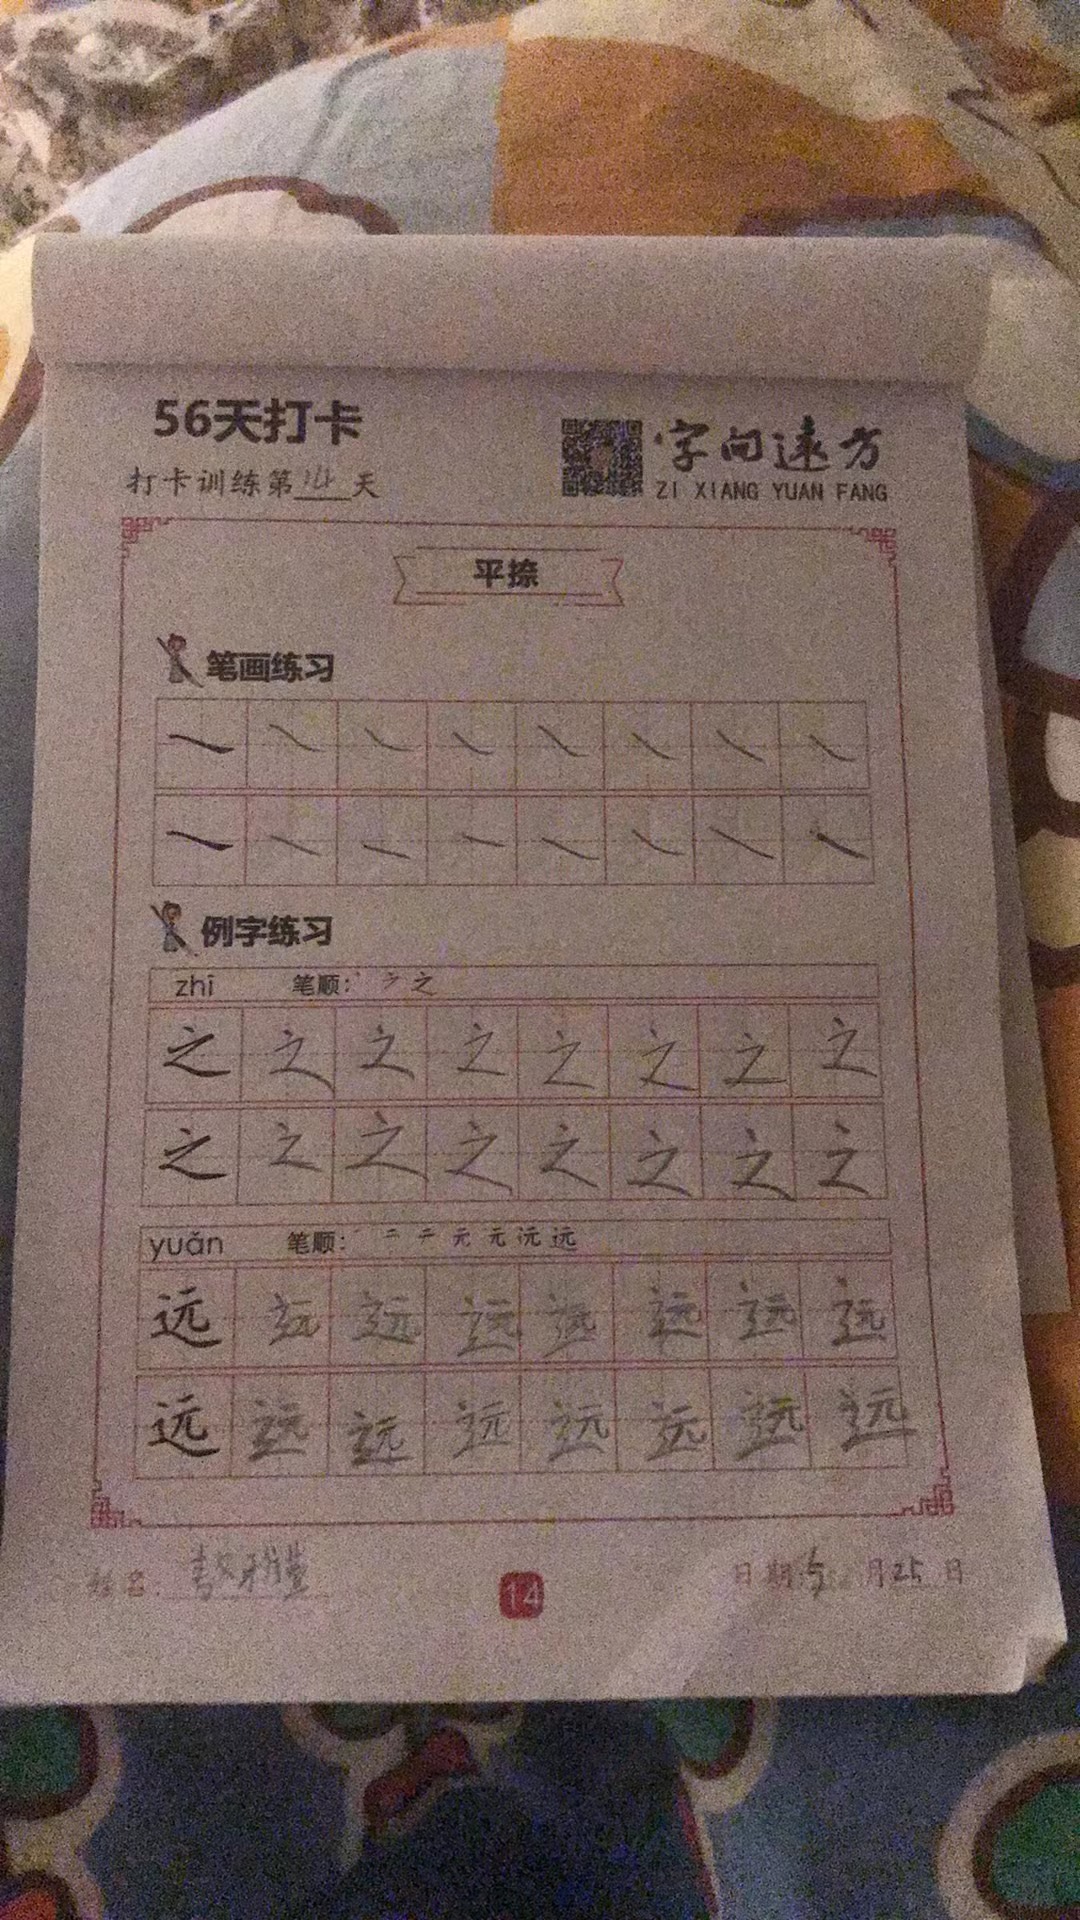 56天打卡
打卡训练第14天
字向远方
ZI XIANG YUAN FANG
平捺
笔画练习
例字练习
zhī 笔顺: 丶 ㇇ 之
之 之 之 之 之 之 之 之
之 之 之 之 之 之 之 之
yuǎn 笔顺: 一 二 テ 元 元 沅 远
远 远 远 远 远 远 远 远
远 远 远 远 远 远 远 远
姓名:
14
日期:5月25日